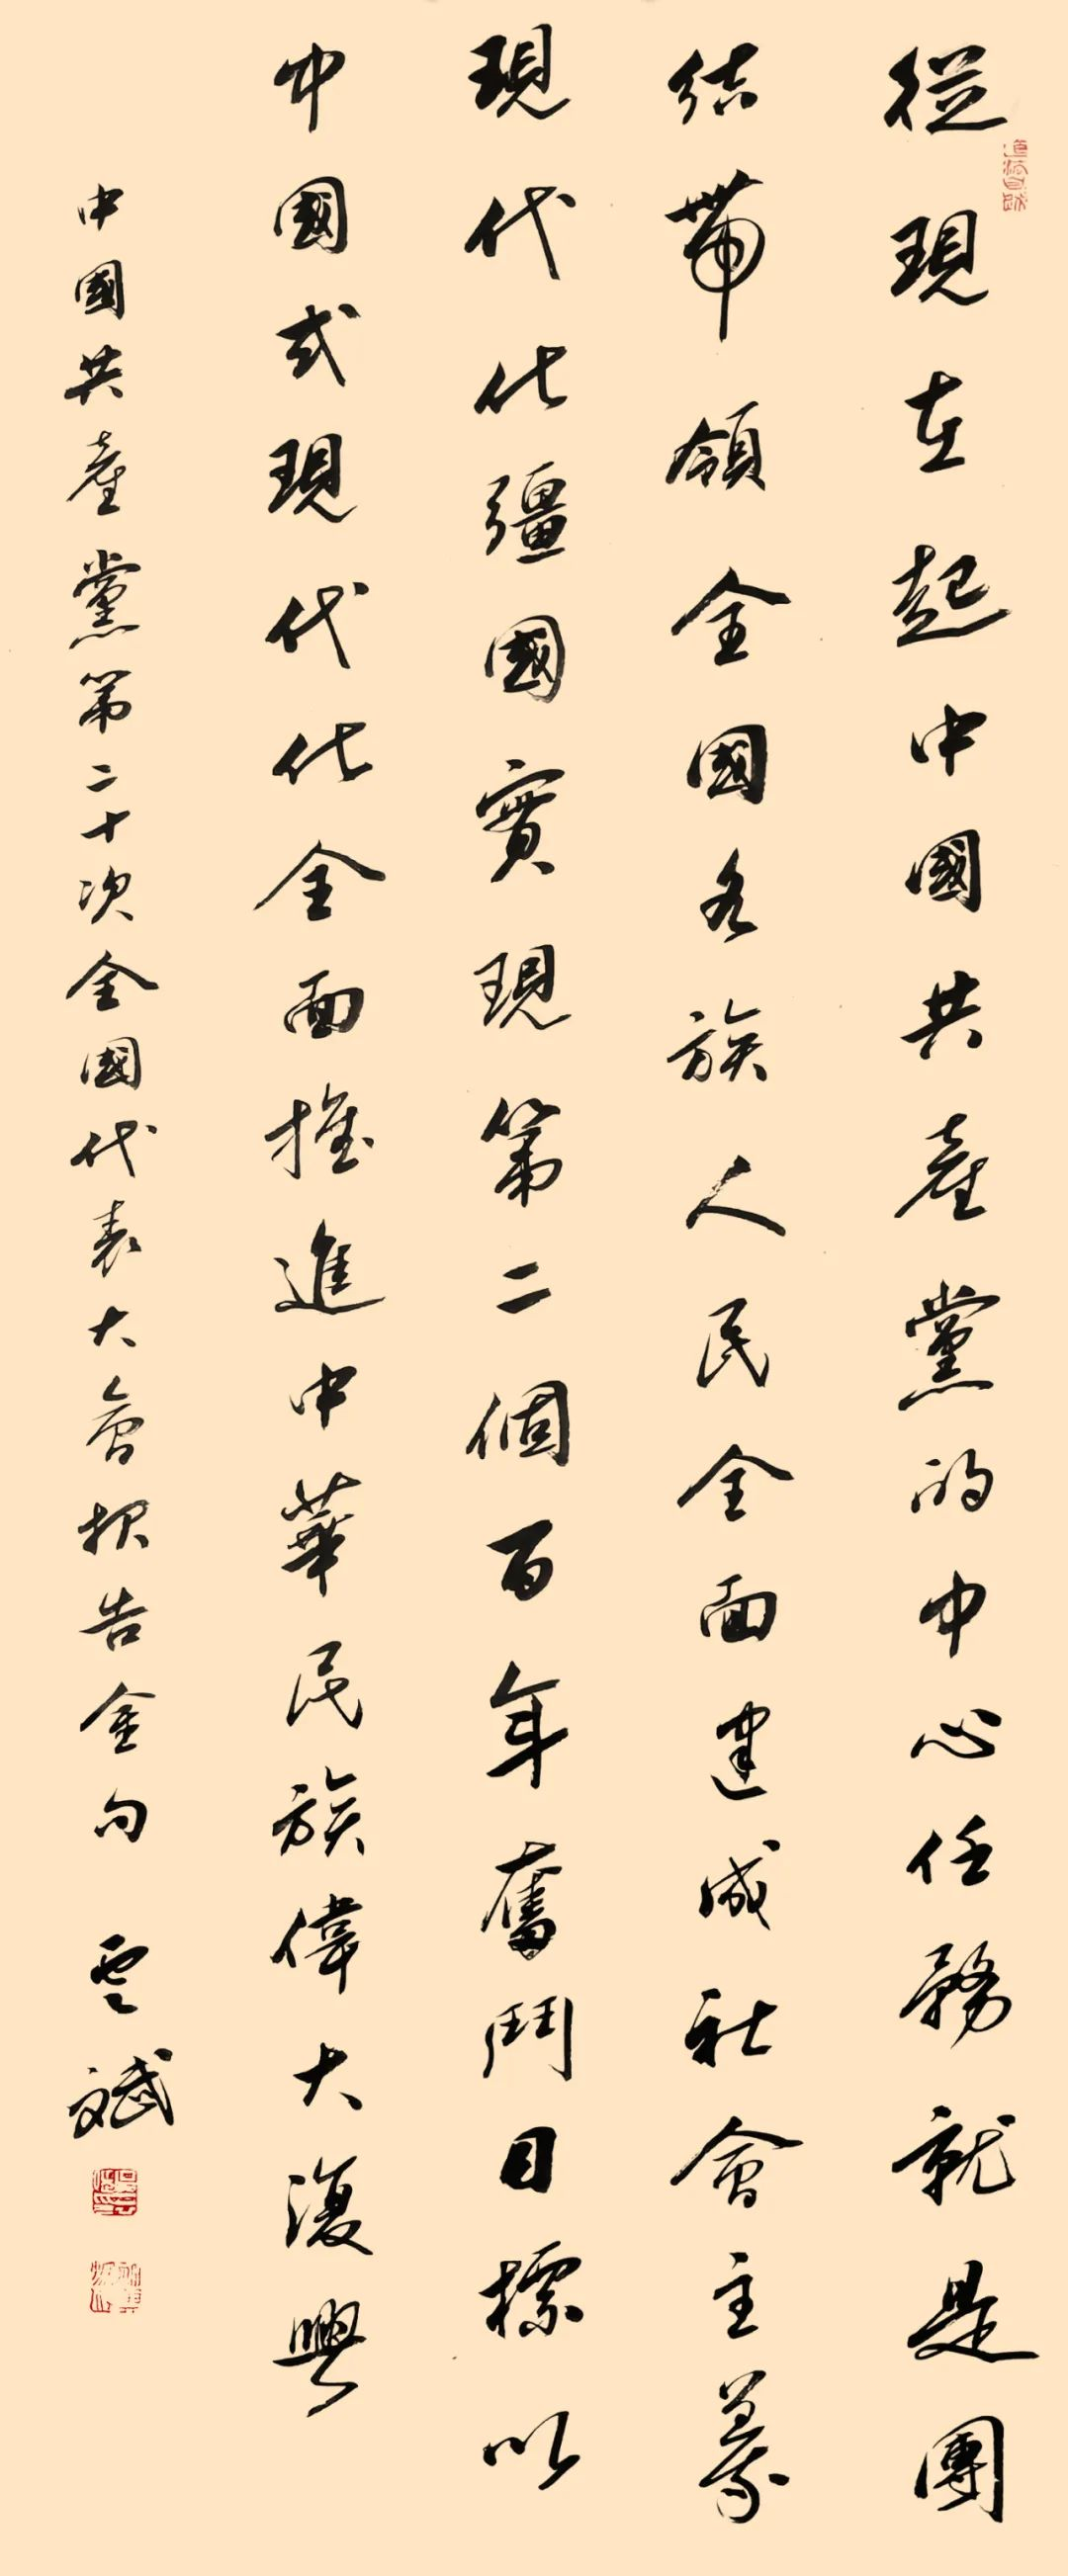 從現在起中國共產黨的中心任務就是團
結帶領全國各族人民全面建成社會主義
現代化彊國實現第二個百年奮鬥目標以
中國式現代化全面推進中華民族偉大復興
中國共產黨第二十次全國代表大會報告金句 雲斌